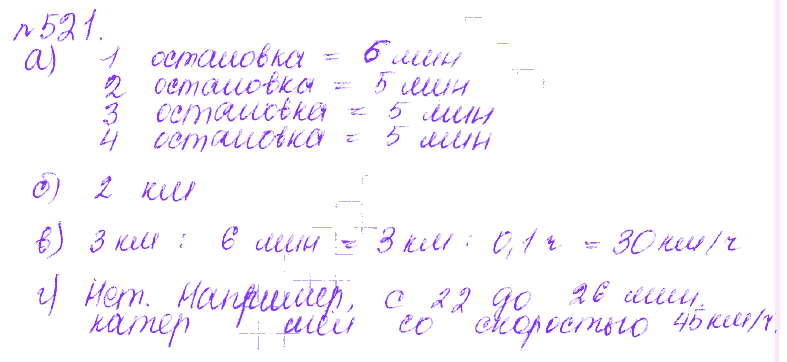 №521.
а) 1 остановка = 6 мин
2 остановка = 5 мин
3 остановка = 5 мин
4 остановка = 5 мин
б) 2 км
в) 3 км : 6 мин = 3 км : 0,1 ч = 30 км/ч
г) Нет. Например, с 22 до 26 мин.
катер шёл со скоростью 45 км/ч.